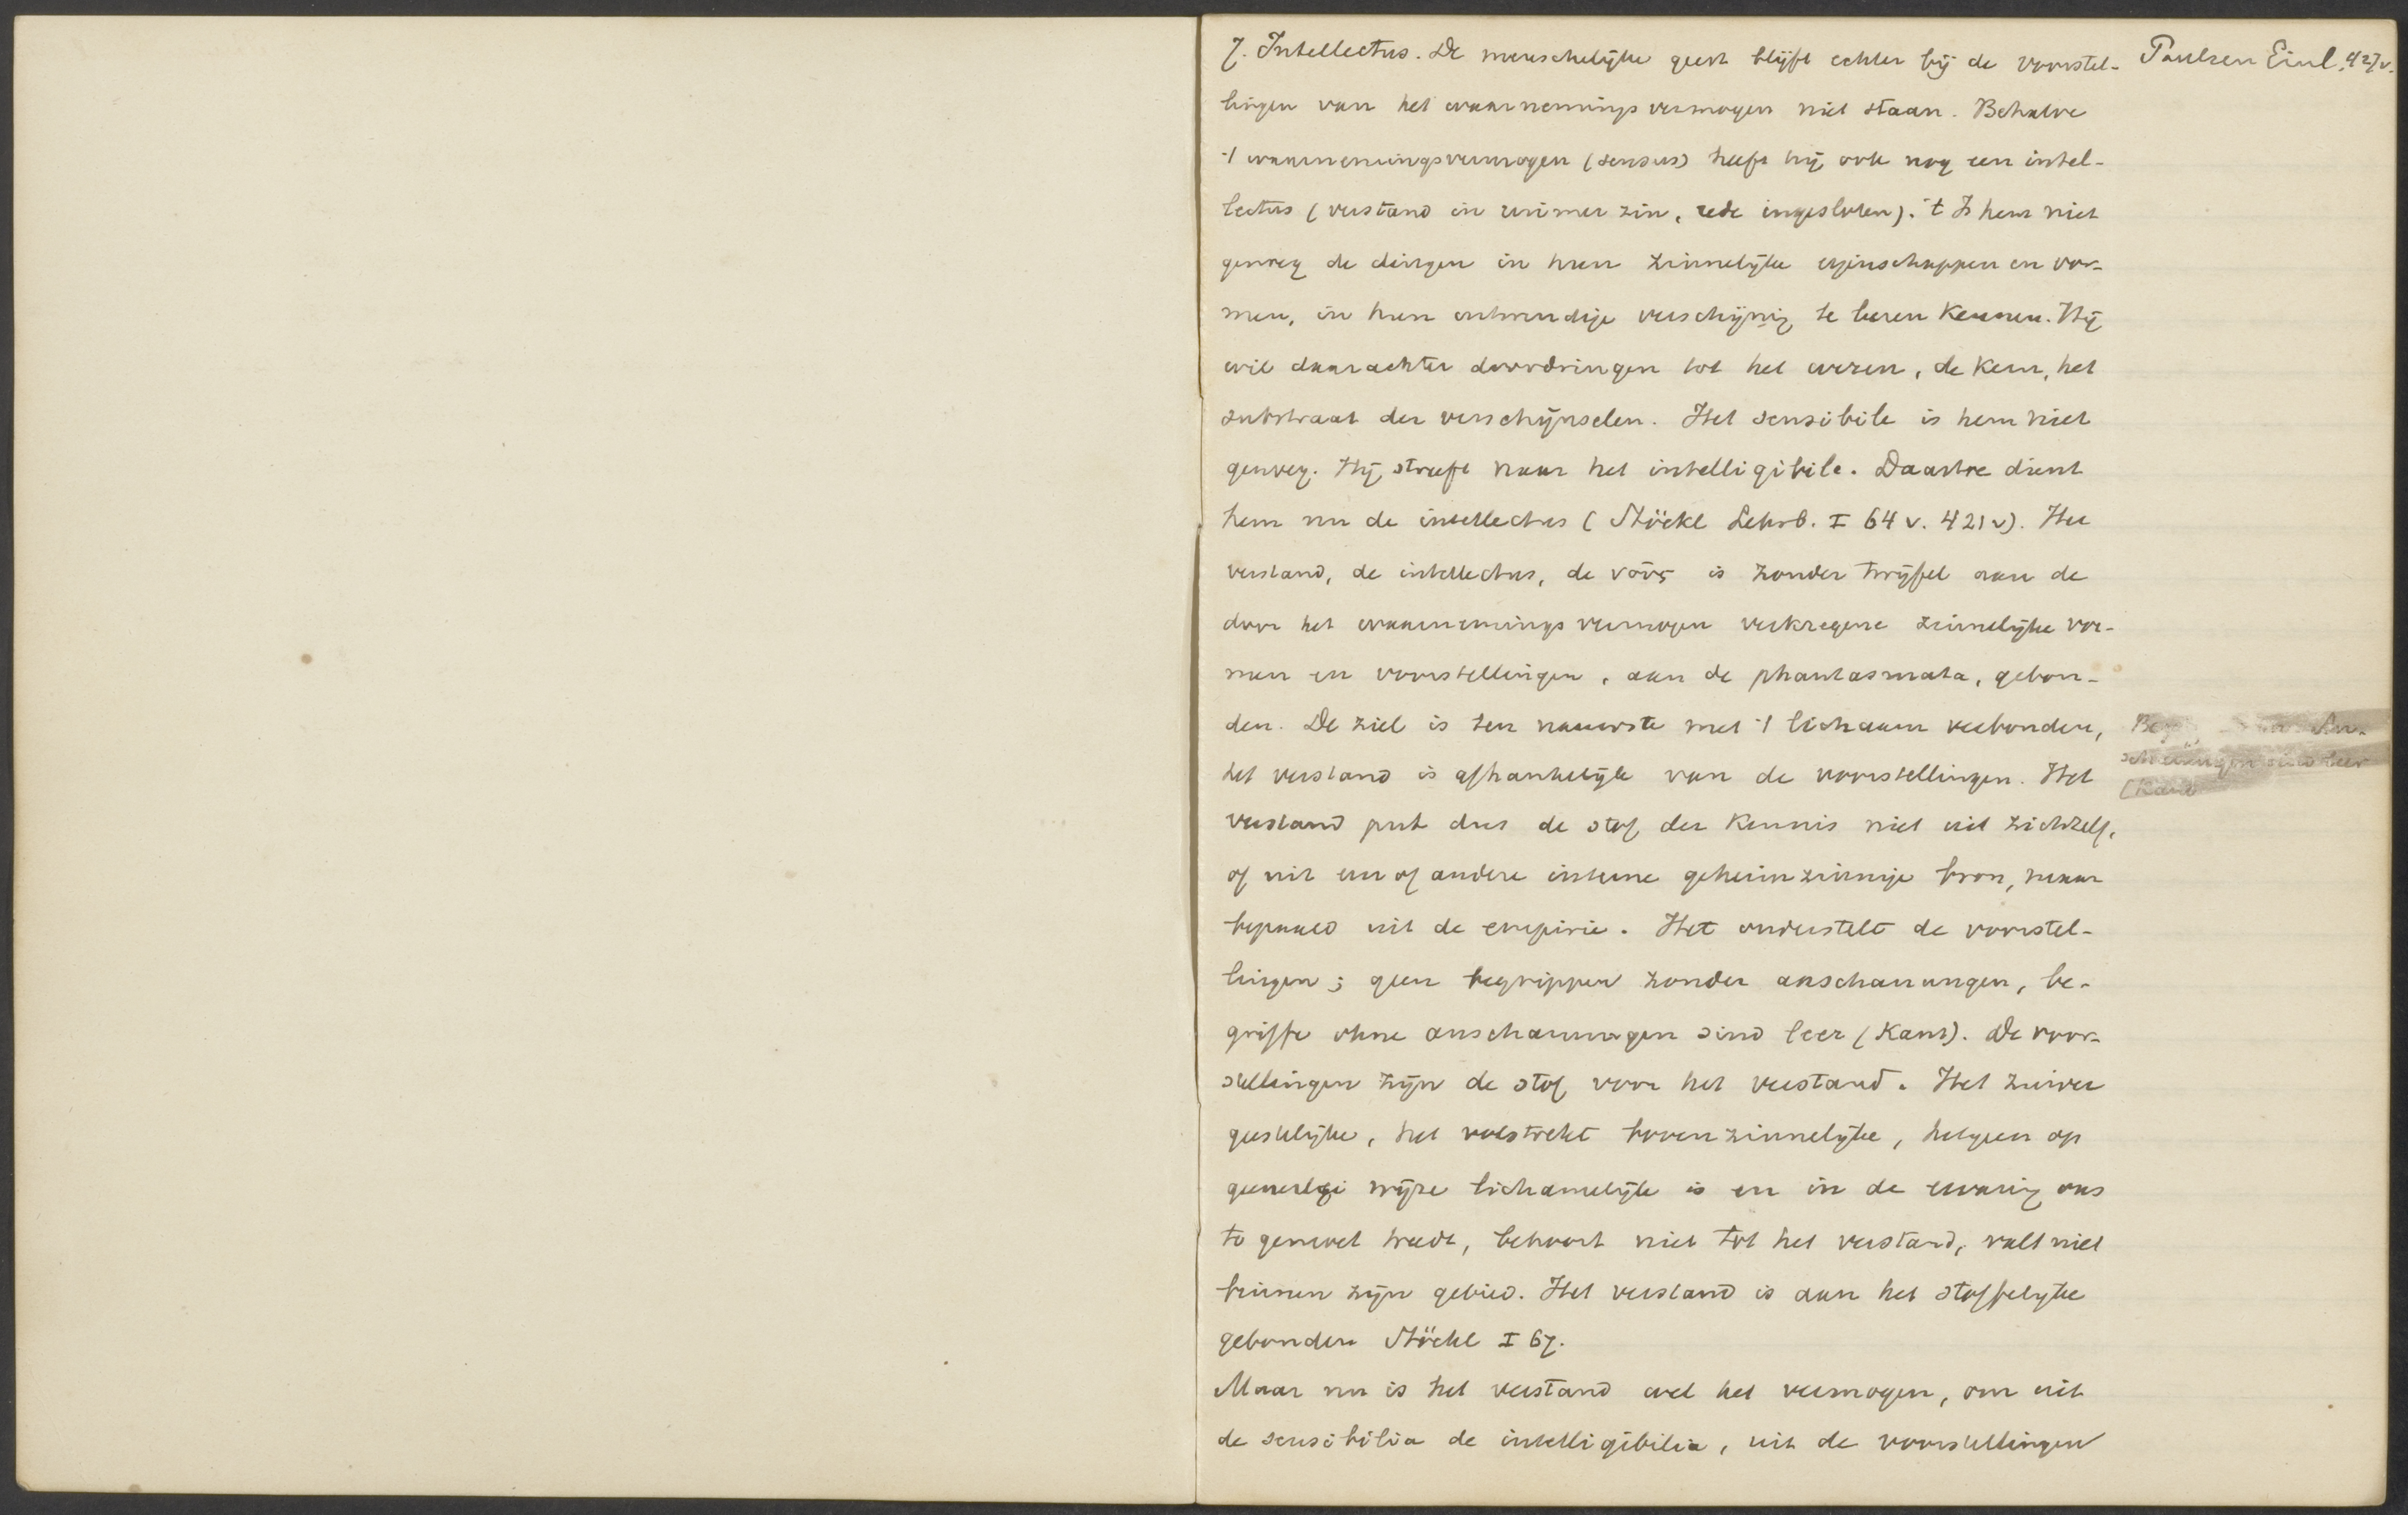 7. Intellectus. De menschelijke geest blijft echter bij de voorstel-
Paulsen Einl. 427v.
lingen van het waarnemingsvermogen niet staan. Behalve
't waarnemingsvermogen (sensus) heeft hij ook nog een intel-
lectus (verstand in ruimer zin, rede ingesloten). 't Is hem niet
genoeg de dingen in hun zinnelijke eigenschappen en vor-
men, in hun uitwendige verschijning te leeren kennen. Hij
wil daarachter doordringen tot het wezen, de kern, het
substraat der verschijnselen. Het sensibile is hem niet
genoeg. Hij streeft naar het intelligibile. Daartoe dient
hem nu de intellectus (Stöckl Lehrb. I 64 v. 421 v). Het
verstand, de intellectus, de νοῦς is zonder twijfel aan de
door het waarnemings vermogen verkregene zinnelijke vor-
men en voorstellingen, aan de phantasmata, gebon-
den. De ziel is ten nauwste met 't lichaam verbonden,
het verstand is afhankelijk van de voorstellingen. Het
verstand put dus de stof der kennis niet uit zichzelf,
of uit een of andere interne geheimzinnige bron, maar
bepaald uit de empirie. Het onderstelt de voorstel-
lingen; geen begrippen zonder anschauungen, be-
griffe ohne anschauungen sind leer (Kant). De voor-
stellingen zijn de stof voor het verstand. Het zuiver
geestelijke, het volstrekt bovenzinnelijke, hetgeen op
geenerlei wijze lichamelijk is en in de ervaring ons
te gemoet treedt, behoort niet tot het verstand, valt niet
binnen zijn gebied. Het verstand is aan het stoffelijke
gebonden Stöckl I 67.
Maar nu is het verstand wel het vermogen, om uit
de sensibilia de intelligibilia, uit de voorstellingen